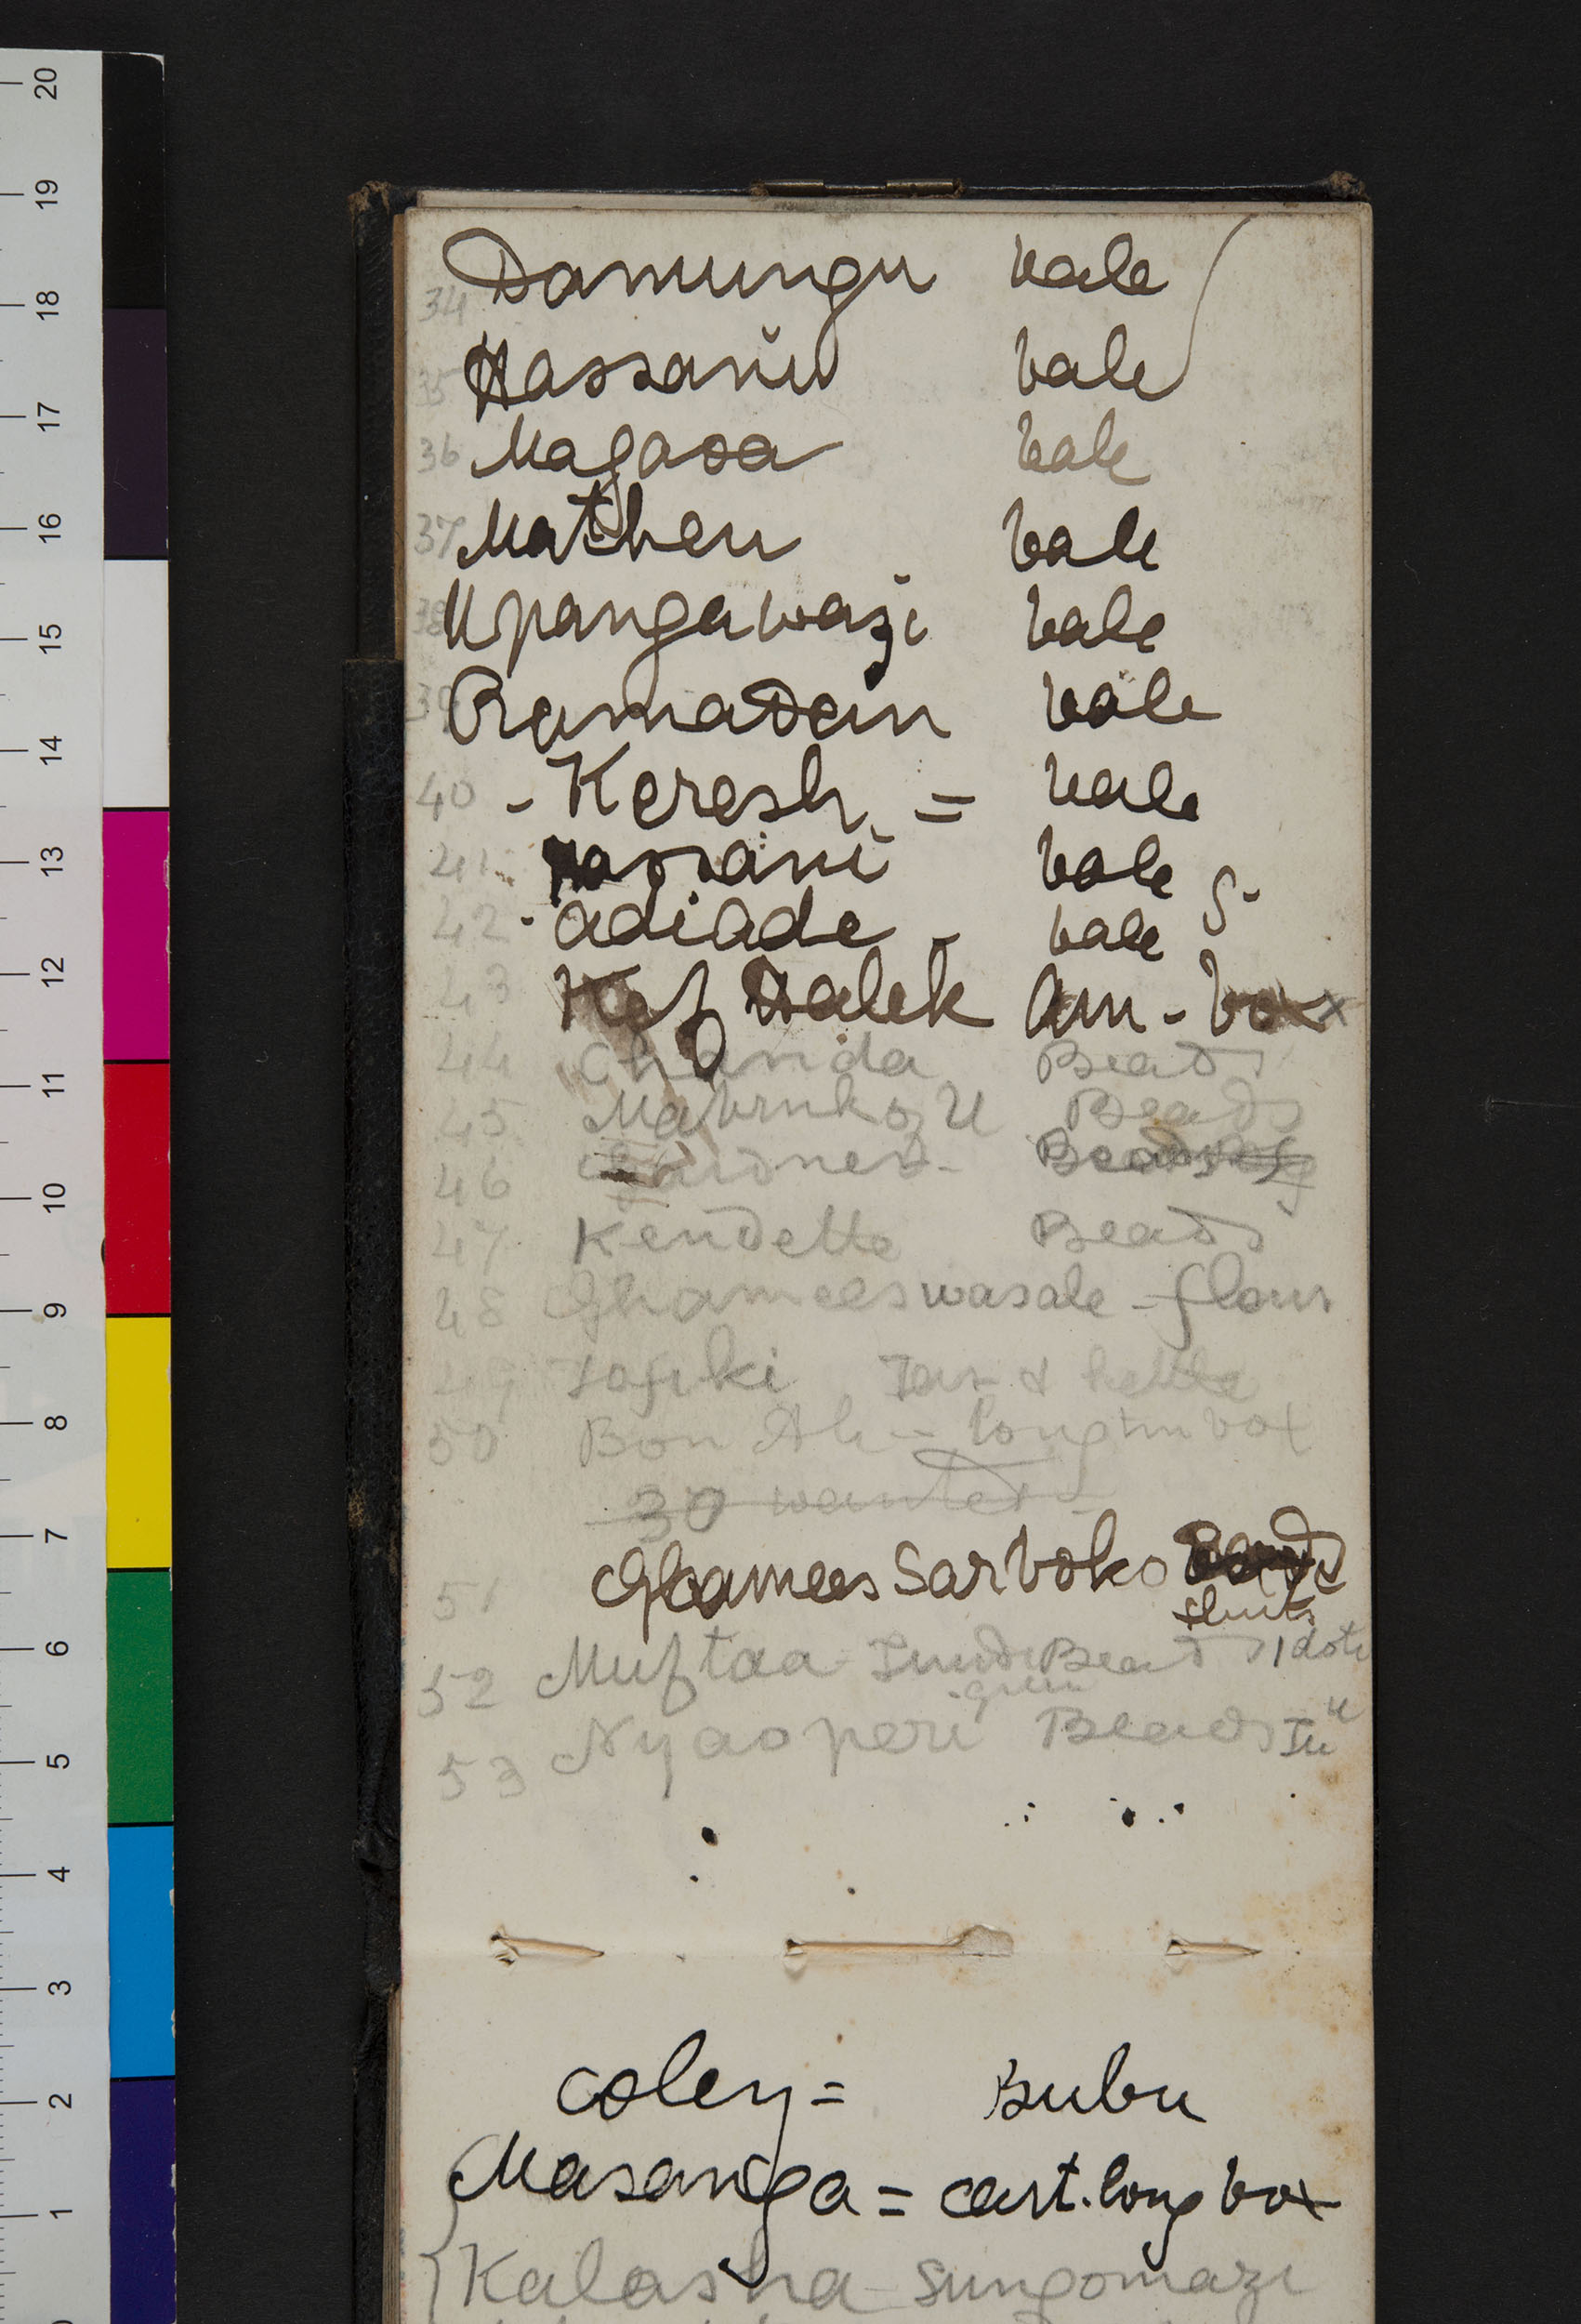 34 Damungu bale
35 Hassani bale
36 Magasa bale
37 Mathew bale
38 Upangawazi bale
39 Ramadan bale
40 - Keresh = bale
41 Hassani bale
42 - adiade - bale
43 Kef Halek Am - box x
44 Chanda Beads
45 Mabruko U Beads
46 Gardner - Beads
47 Kendette Beads
48 Ghamees wasale - flour
49 Tofiki & kettle
50 Bon Ali - long tin box
30 wanted -
51 Ghamees Sarboko
52 Muftaa Beads 1 doti
53 Nyasperi Beads
coley = Bubu
Masanga = cart. long box
Kalasha - Sungomazi